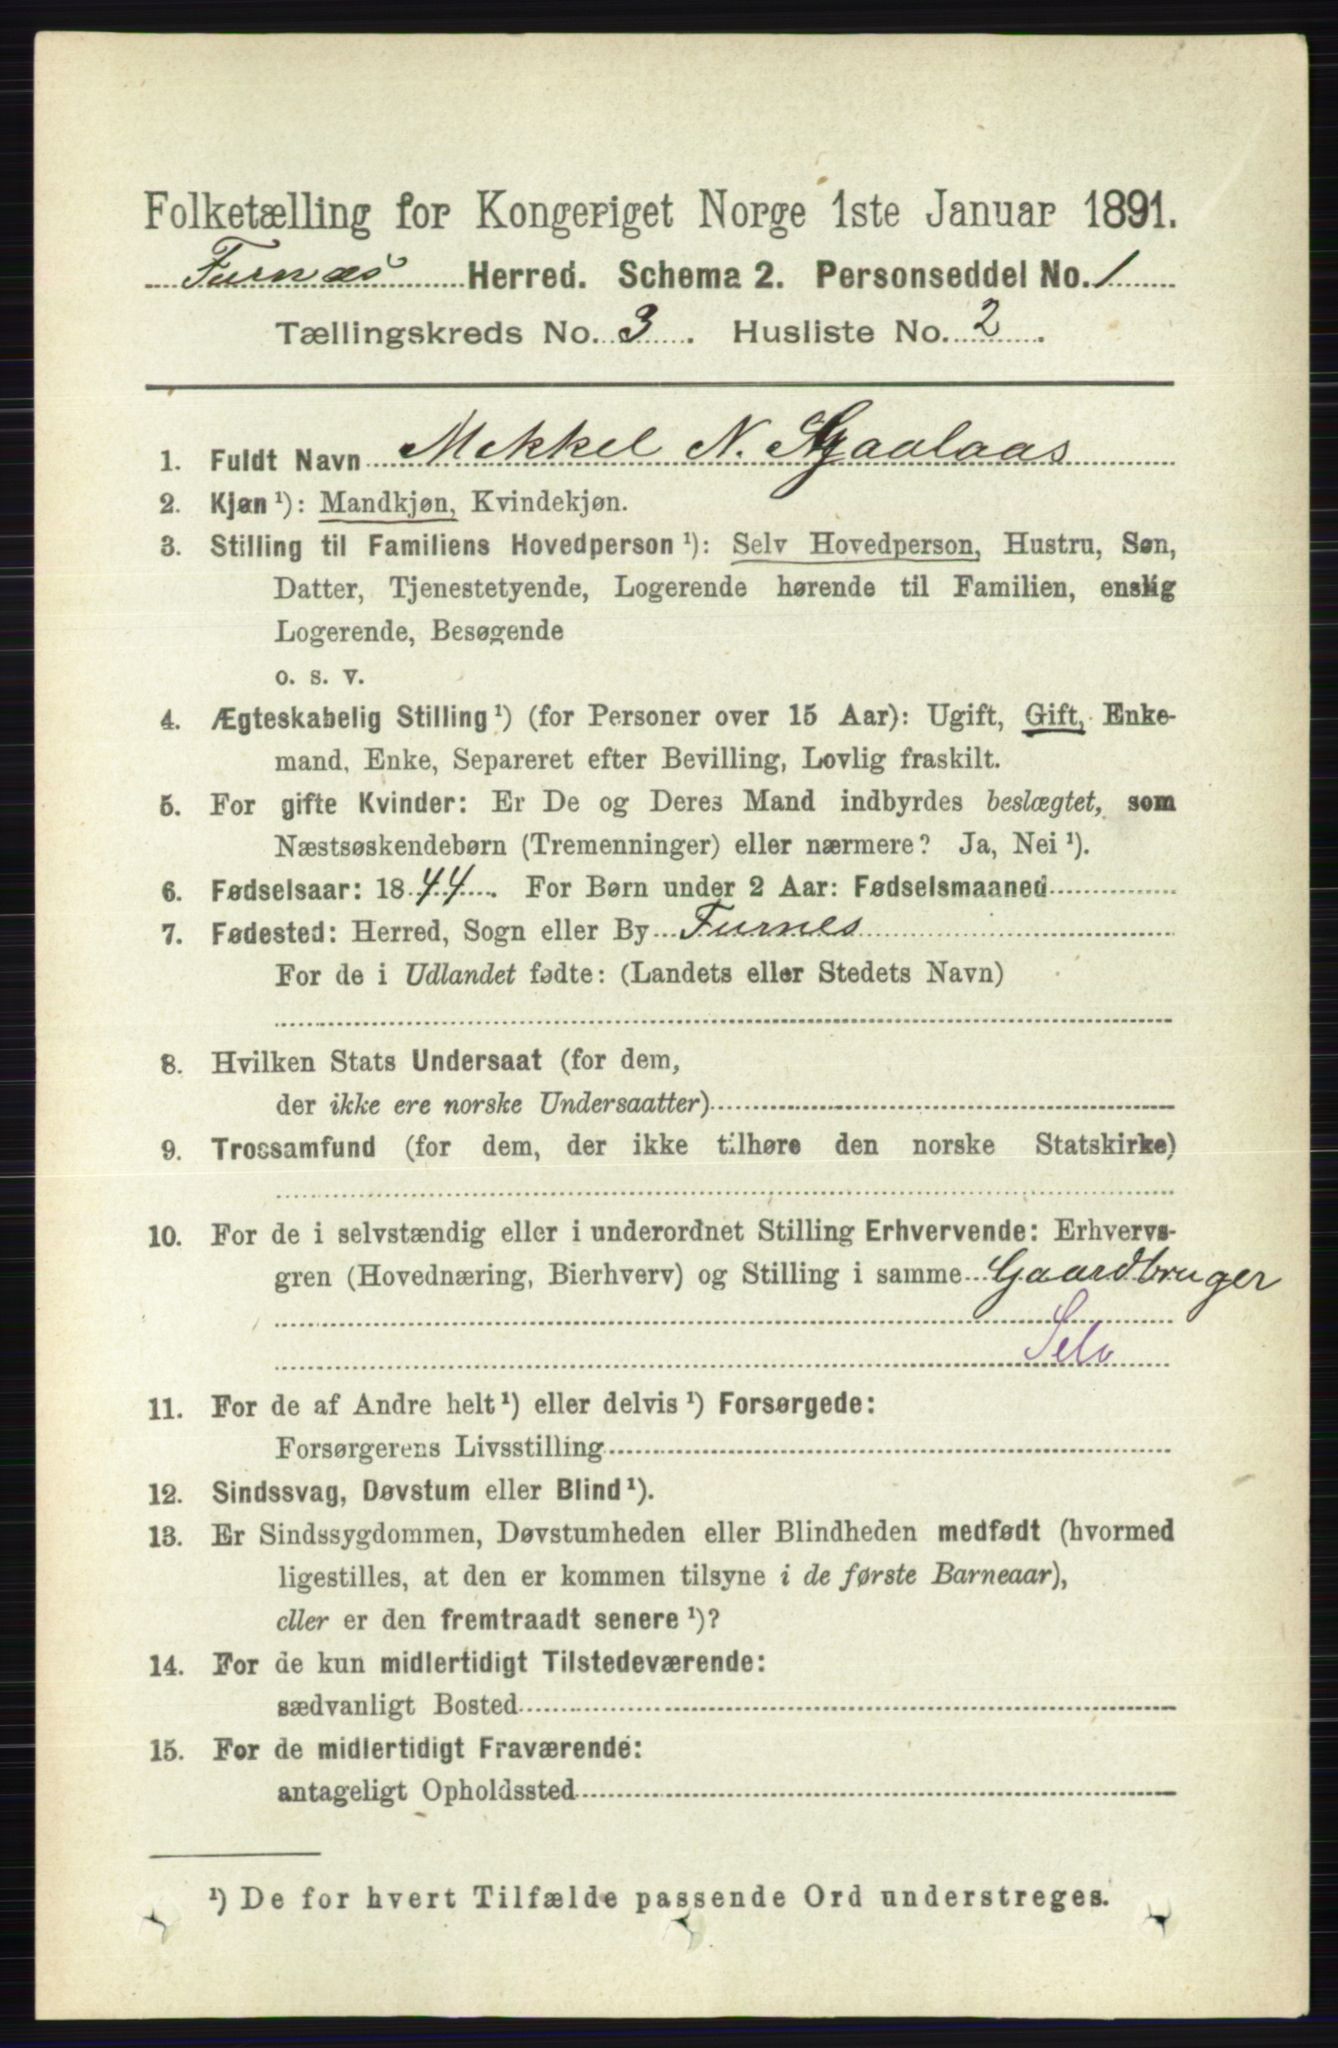 Folketælling for Kongeriget Norge 1ste Januar 1891.
Furnæs Herred. Schema 2. Personseddel No. 1
Tællingskreds No. 3. Husliste No. 2.
1. Fuldt Navn Mekkel N. Gaalaas
2. Kjøn ¹): Mandkjøn, Kvindekjøn.
3. Stilling til Familiens Hovedperson ¹): Selv Hovedperson, Hustru, Søn,
Datter, Tjenestetyende, Logerende hørende til Familien, enslig
Logerende, Besøgende
o. s. v.
4. Ægteskabelig Stilling ¹) (for Personer over 15 Aar): Ugift, Gift, Enke-
mand, Enke, Separeret efter Bevilling, Lovlig fraskilt.
5. For gifte Kvinder: Er De og Deres Mand indbyrdes beslægtet, som
Næstsøskendebørn (Tremenninger) eller nærmere? Ja, Nei ¹).
6. Fødselsaar: 1844. For Børn under 2 Aar: Fødselsmaaned
7. Fødested: Herred, Sogn eller By Furnes
For de i Udlandet fødte: (Landets eller Stedets Navn)
8. Hvilken Stats Undersaat (for dem,
der ikke ere norske Undersaatter)
9. Trossamfund (for dem, der ikke tilhøre den norske Statskirke)
10. For de i selvstændig eller i underordnet Stilling Erhvervende: Erhvervs-
gren (Hovednæring, Bierhverv) og Stilling i samme Gaardbruger
Selv
11. For de af Andre helt ¹) eller delvis ¹) Forsørgede:
Forsørgerens Livsstilling
12. Sindssvag, Døvstum eller Blind ¹).
13. Er Sindssygdommen, Døvstumheden eller Blindheden medfødt (hvormed
ligestilles, at den er kommen tilsyne i de første Barneaar),
eller er den fremtraadt senere ¹)?
14. For de kun midlertidigt Tilstedeværende:
sædvanligt Bosted
15. For de midlertidigt Fraværende:
antageligt Opholdssted
¹) De for hvert Tilfælde passende Ord understreges.